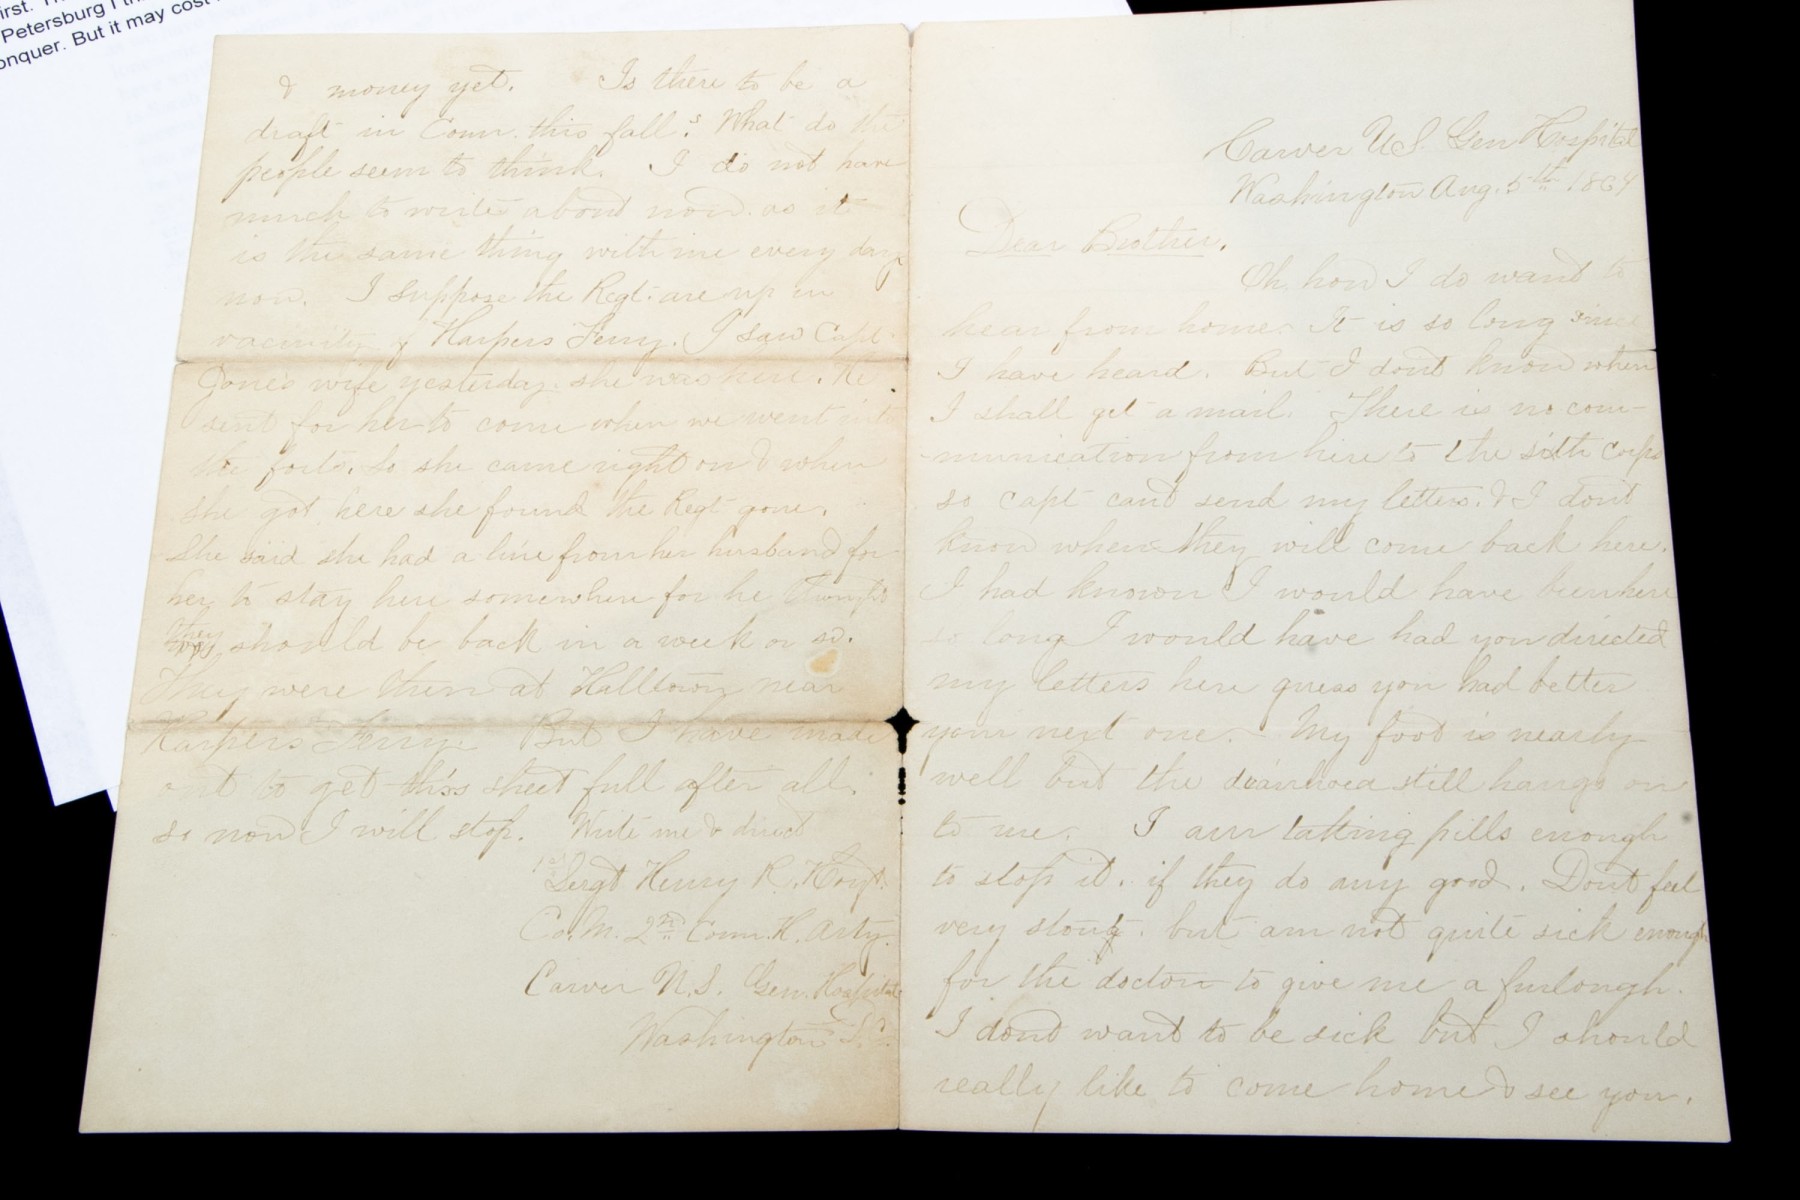 irst. Th
Petersburg I th
onquer. But it may cost
& money yet. Is there to be a
draft in Conn. this fall? What do the
people seem to think. I do not have
much to write about now. as it
is the same thing with me every day
now. I suppose the Regt. are up in
vacinity of Harpers Ferry. I saw Capt
Jone's wife yesterday. she was here. He
sent for her to come when we went into
the forts. so she came right on & when
she got here she found the Regt gone.
She said she had a line from her husband for
her to stay here somewhere for he thought
they should be back in a week or so.
They were then at Halltown near
Harpers Ferry. But I have made
out to get this sheet full after all.
so now I will stop. Write me & direct
1st Sergt Henry R. Hoyt.
Co. M. 2nd Conn. H. Arty.
Carver U.S. Gen. Hospital
Washington D.C.
Carver U.S. Gen Hospital
Washington Aug. 5th 1864
Dear Brother.
Oh how I do want to
hear from home. It is so long since
I have heard. But I dont know when
I shall get a mail. There is no com-
-munication from here to the sixth corps
so capt cant send my letters. & I dont
know when they will come back here.
I had known I would have been here
so long I would have had you directed
my letters here guess you had better
your next one. My foot is nearly
well but the diarrhoea still hangs on
to me. I am takking pills enough
to stop it. if they do any good. Dont feel
very stout. but am not quite sick enough
for the doctor to give me a furlough.
I dont want to be sick but I should
really like to come home & see you.